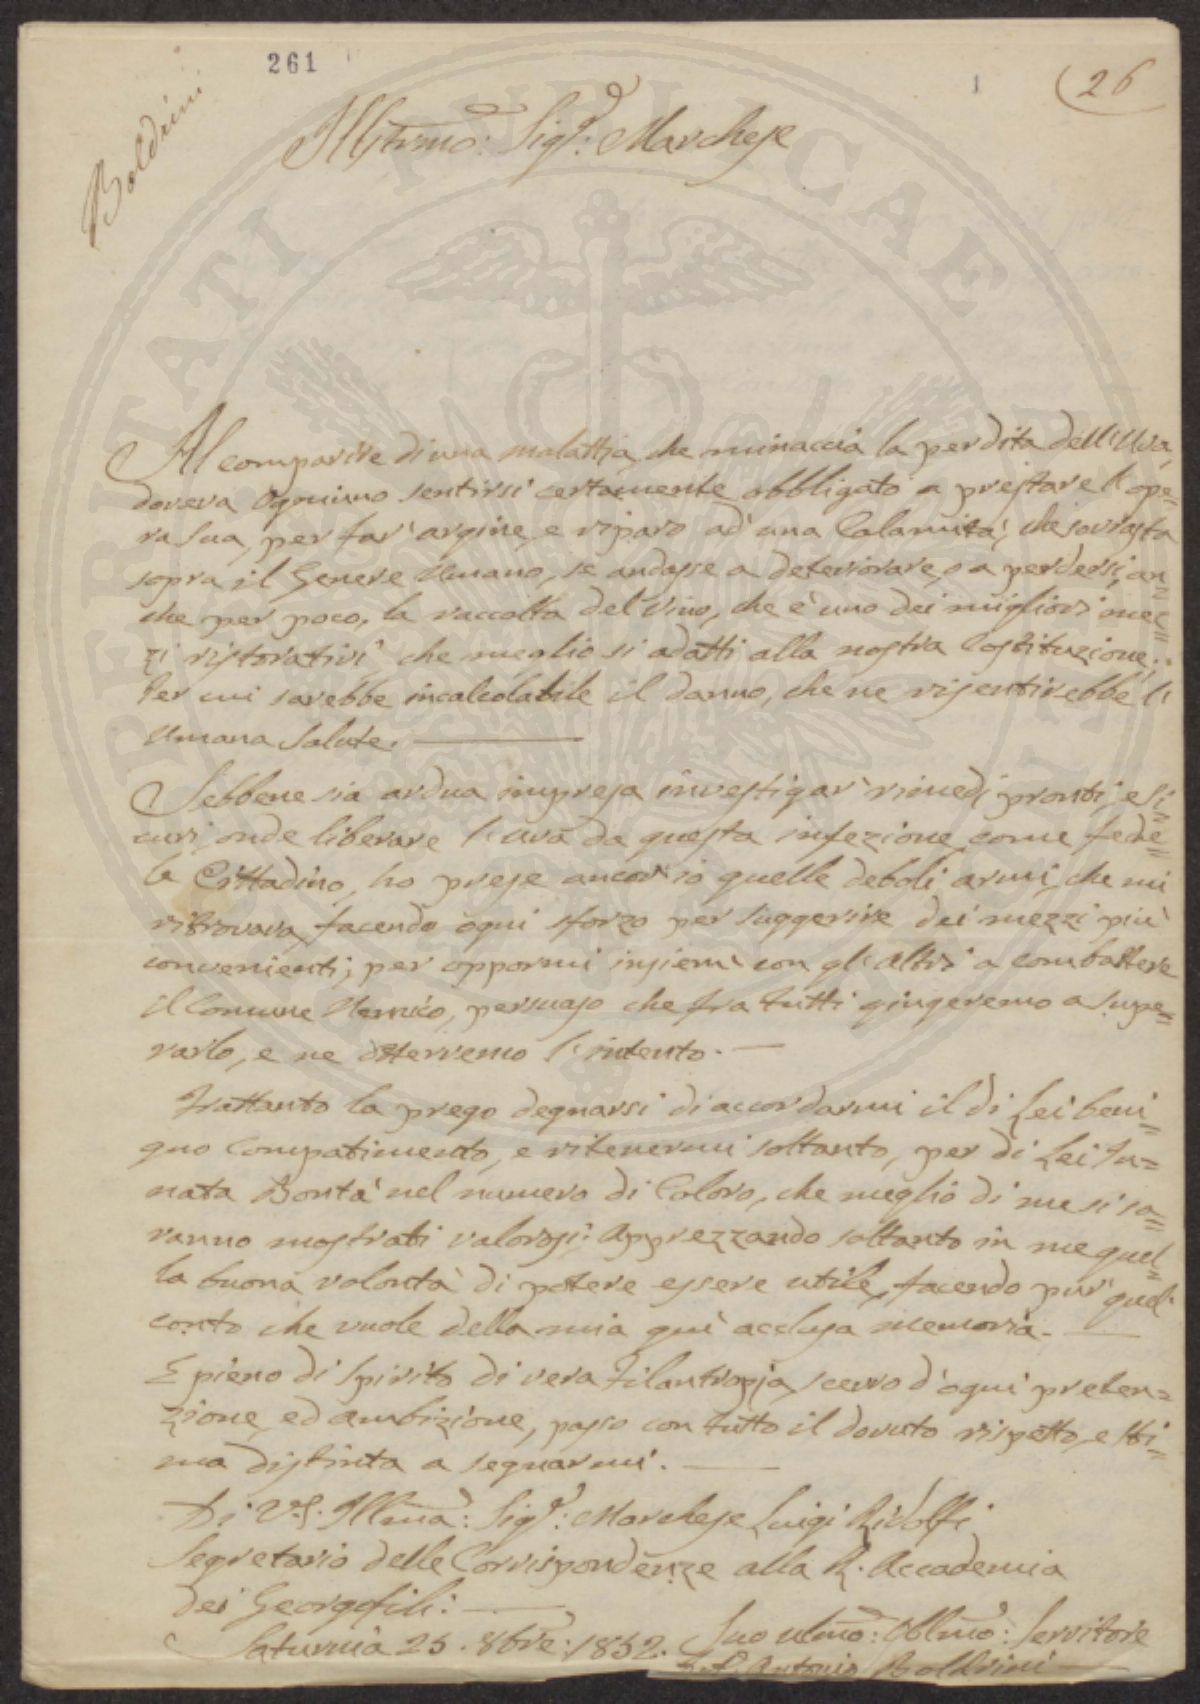 261
26
Boldrini
Illustrmo: Sigr: Marchese
Al comparire di una malattia, che minaccia la perdita dell'Uva,
doveva Ogniuno sentirsi certamente obbligato a prestare l'ope=
ra sua, per far' argine, e riparo ad' una Calamità, che sovrasta
sopra il Genere Umano, se andasse a deteriorare, o a perdersi, an=
che per poco, la raccolta del Vino, che è uno dei migliori mez=
zi ristorativi che meglio si adatti alla nostra Costituzione;
Per cui sarebbe incalcolabile il danno, che ne risentirebbe l'
Umana Salute.
Sebbene sia ardua impresa investigar' rimedj pronti, e si=
curi, onde liberare l'uva da questa infezione, come fede=
le Cittadino, ho prese ancor' io quelle deboli armi, che mi
ritrovava, facendo ogni sforzo per suggerire dei mezzi più
convenienti; per oppormi insiem' con gl'altri a combattere
il Comune Nemico, persuaso che fra tutti giugneremo a supe=
rarlo, e ne otterremo l'intento.
Frattanto la prego degnarsi di accordarmi il di Lei beni=
gno Compatimento, e ritenermi soltanto, per di Lei In=
nata Bontà nel numero di Coloro, che meglio di me si sa=
ranno mostrati valorosi; Apprezzando soltanto in me quel=
la buona volontà di potere essere utile, facendo pur' quel
conto che vuole della mia quì acclusa memoria.
E pieno di Spirito di vera Filantropia, scevro d'ogni preten=
zione, ed ambizione, passo con tutto il dovuto rispetto, e sti=
ma distinta a segnarmi.
Di V.S. Illma: Sigr: Marchese Luigi Ridolfi
Segretario delle Corrispondenze alla R. Accademia
dei Georgofili:
Saturnia 25. 8bre: 1852.
Suo Umo: Oblmo: Servitore
Antonio Boldrini